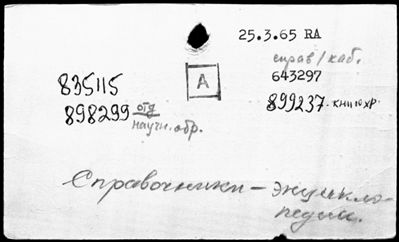 25.3.65 RA
справ/каб.
643297
835115
A
898299 отд
научн. обр.
899237. книгохр.
Справочники – энцикло-
педии.